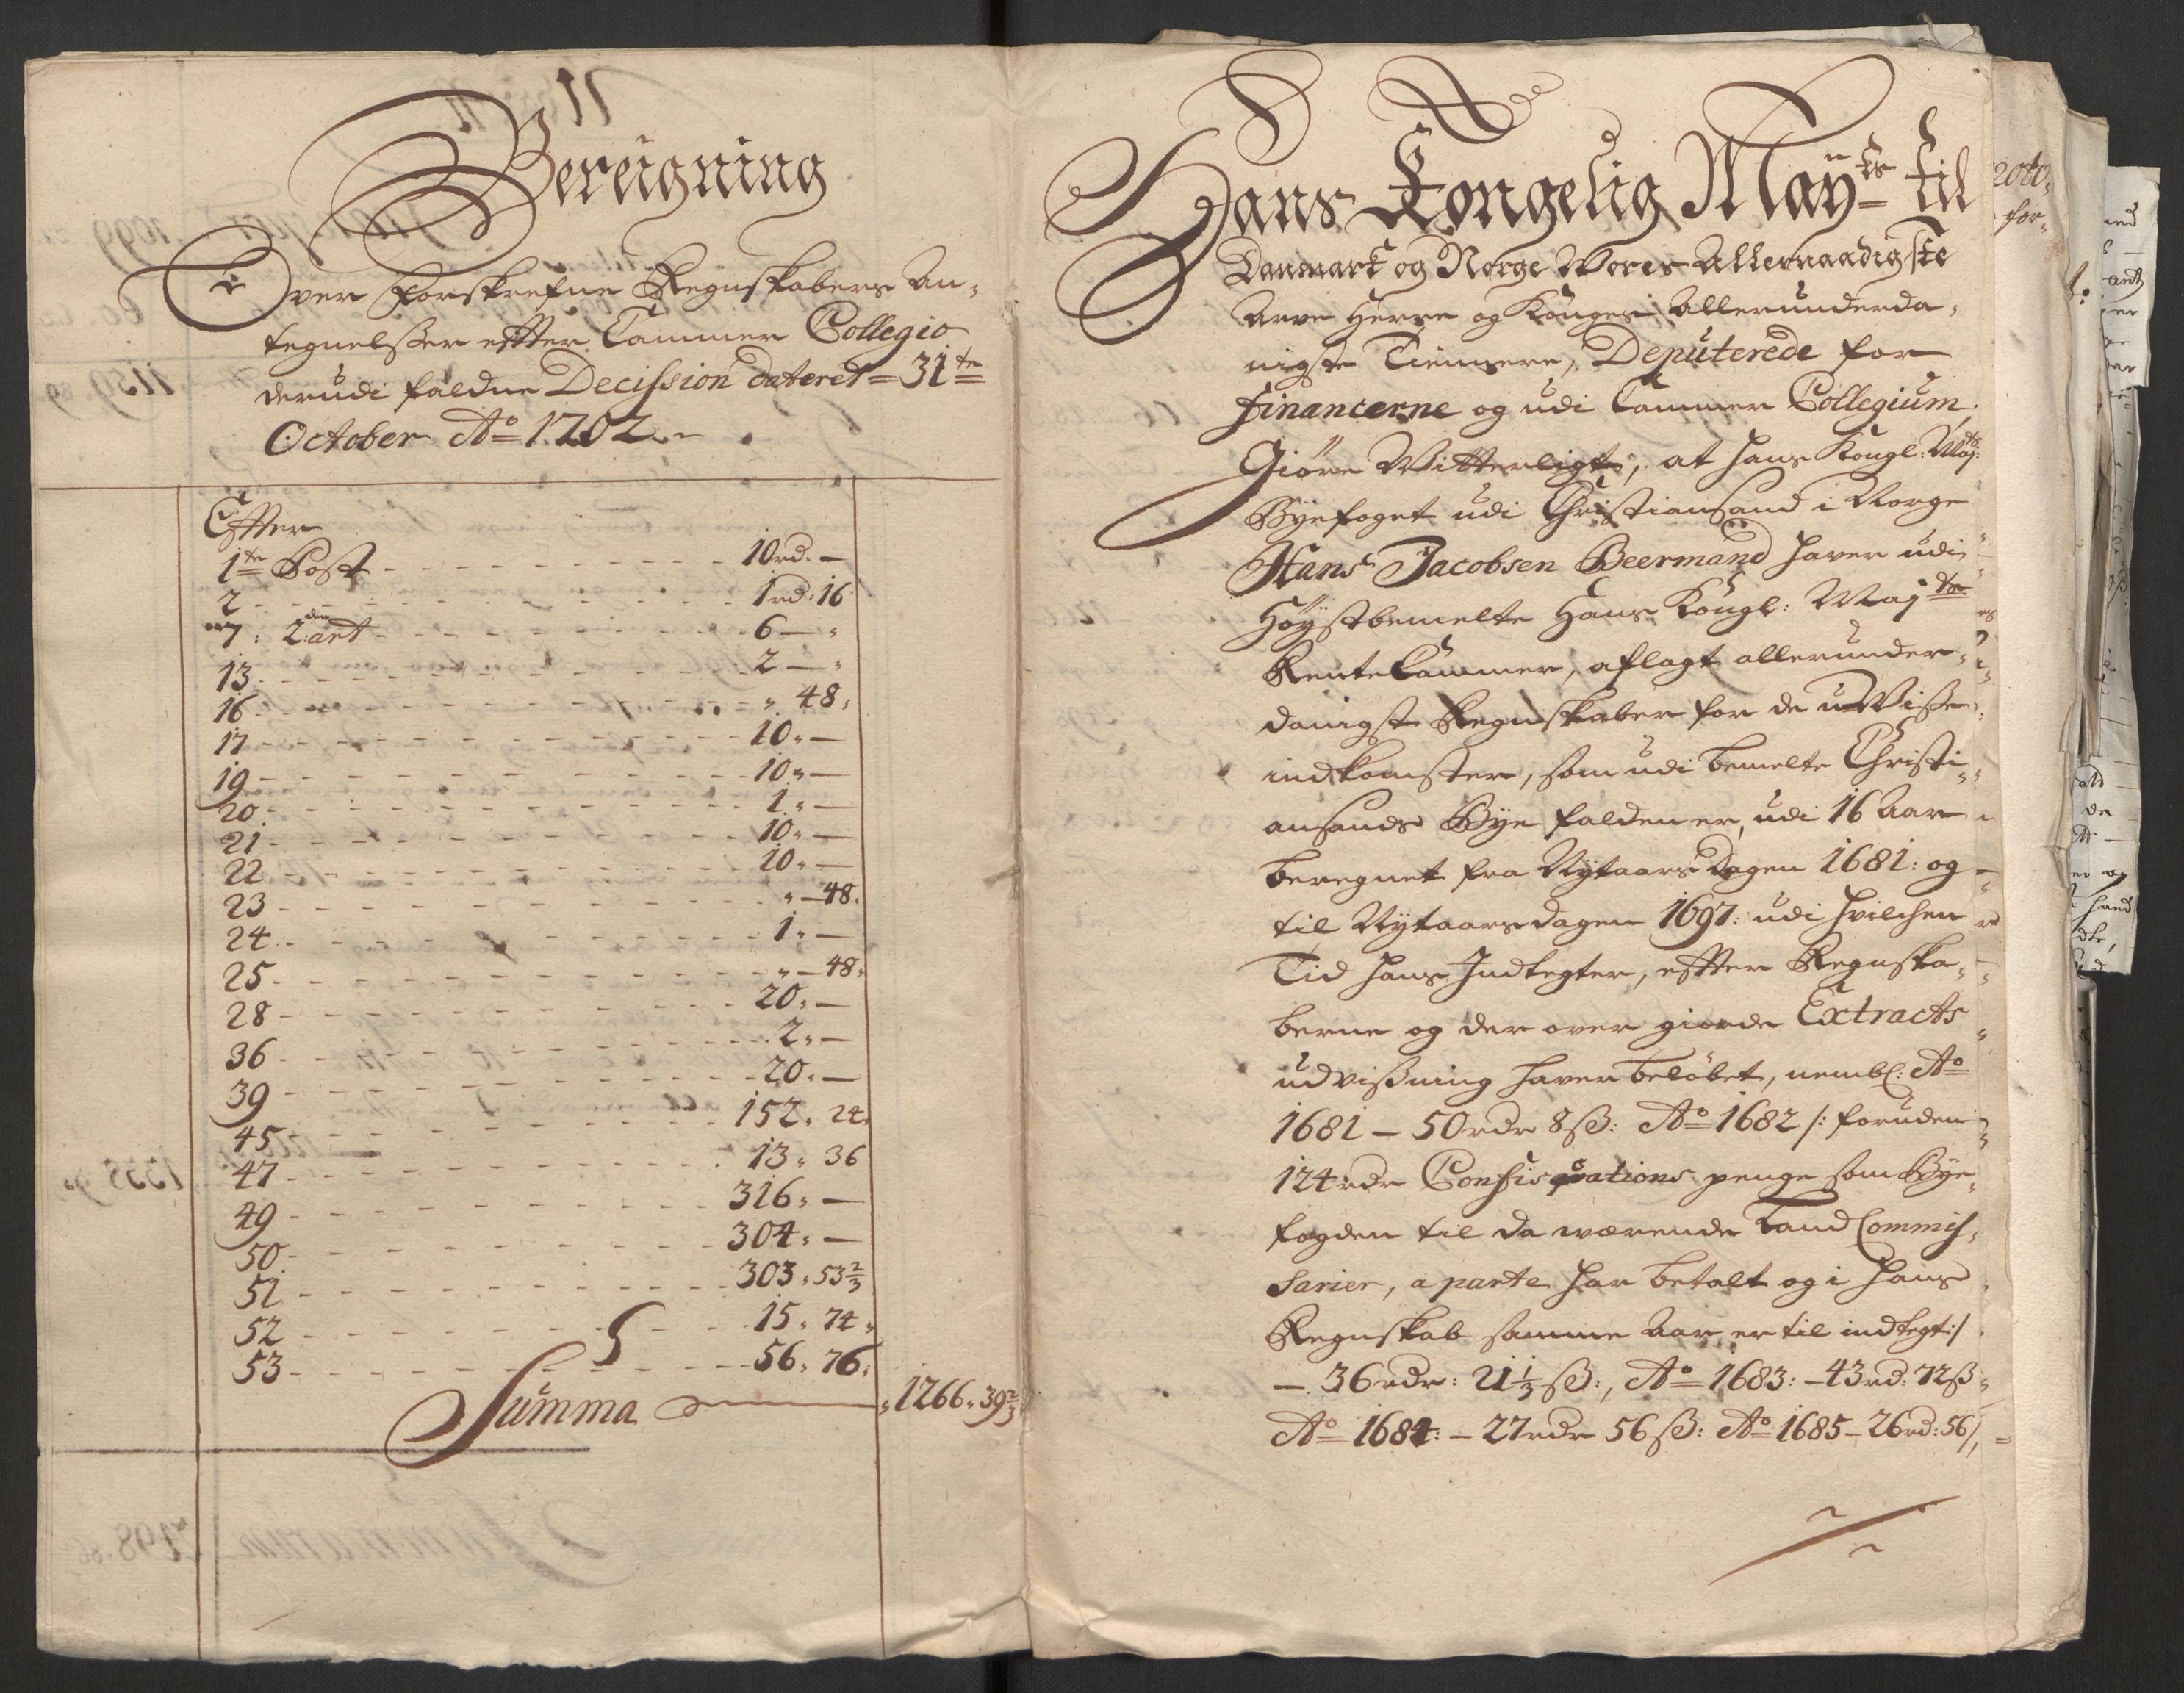 Bereigning
Over Forskrefne Regnskabers An-
tegnelsser effter Cammer Collegio
derudi faldne Decission dateret 31te
October Ao 1702.
Effter
1te Post - 10rd. —
2 - 1rd: 16
7: 2:den ant - 6 — "
13 - 2 — "
16 - " 48,
17 - 10 " —
19 - 10 " —
20 - 1 " —
21 - 10 " —
22 - 10 " —
23 - " — 48.
24 - 1 " —
25 - " — 48,
28 - 20 " —
36 - 2 " —
39 - 20 " —
45 - 152 " 24
47 - 13 " 36
49 - 316 " —
50 - 304 " —
51 - 303 " 53 2/3
52 - 15 " 74
53 - 56 " 76
Summa — 1266 " 39 2/3
Hans Kongelig Mayts til
Danmark og Norge Vores Allernaadigste
Arve Herre og Konges Allerunderda-
nigste Tienere, Deputerede for
Financerne og udi Cammer Collegium,
Giöre Witterligt, at hans Kongl: Maj:ts
Byefoget udi Christiansand i Norge
Hans Jacobsen Beermand hafver udi
Höystbemelte Hans Kongl: Majts
Rente Cammer, aflagt allerunder-
danigst Regnskaber for de uVisse
indkomster, som udi bemelte Christi-
ansands Bye falden er, udi 16 Aar
beregnet fra Nytaars Dagen 1681: og
til Nytaarsdagen 1697: udi hvilchen
Tid hans Indtegter, effter Regnska-
berne og der over giorde Extracts
udvissning hafver belöbet, nembl: Ao
1681 — 50rdr 8ß: Ao 1682 /: foruden
124rdr Confisqvations penge som Bye-
fogden til da værende Land Commis-
sarier, a parte har betalt og i hans
Regnskab samme Aar er til indtegt:/
— 36rdr: 21 1/3 ß:, Ao 1683: — 43rd: 72ß
Ao 1684: — 27rdr 56ß: Ao 1685 — 26rd: 56